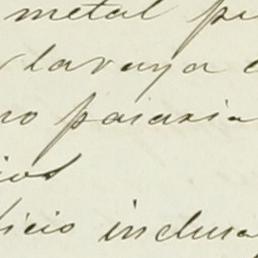 metal pe
lavaya
no paraxi
ios
icio inclusa